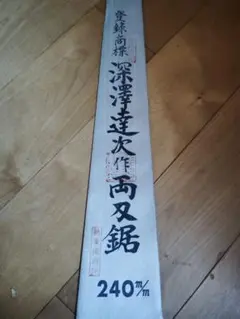 登録商標
深澤達次作
両刃鋸
240 m/m